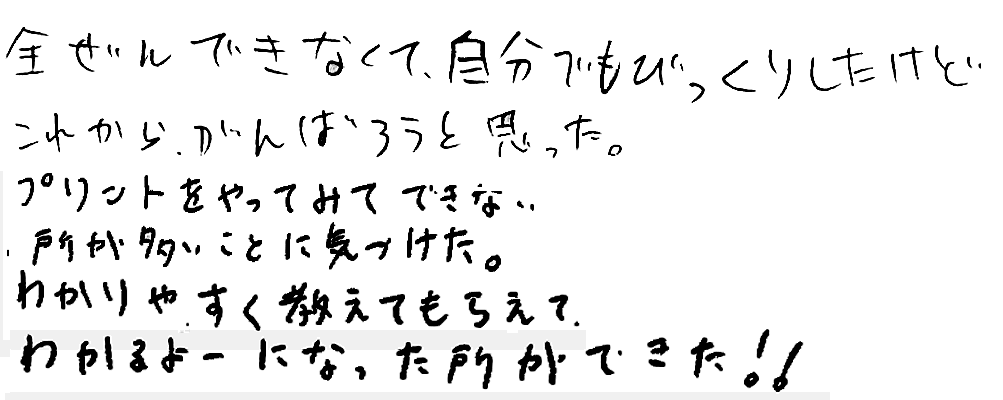 全ぜんできなくて、自分でもびっくりしたけど
これから、がんばろうと思った。
プリントをやってみてできない
所が多いことに気づけた。
わかりやすく教えてもらえて、
わかるよーになった所ができた!!